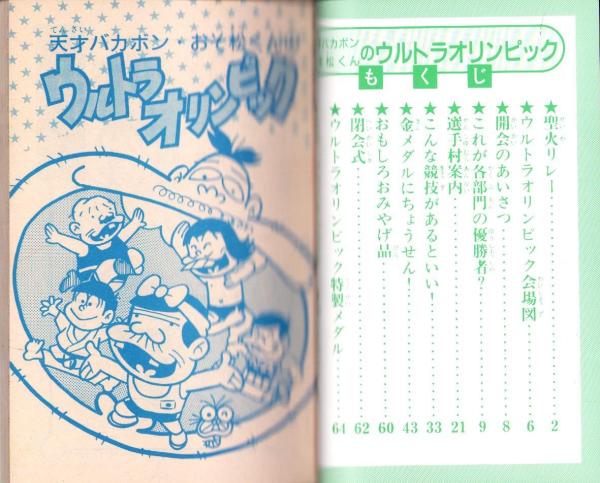 天才バカボン・おそ松くん
てんさい
ウルトラ
オリンピック
バカボン
松くん
のウルトラオリンピック
もくじ
★聖火リレー 2
★ウルトラオリンピック会場図 6
★開会のあいさつ 8
★これが各部門の優勝者? 9
★選手村案内 21
★こんな競技があるといい! 33
★金メダルにちょうせん! 43
★おもしろおみやげ品 60
★閉会式 62
★ウルトラオリンピック特製メダル 64